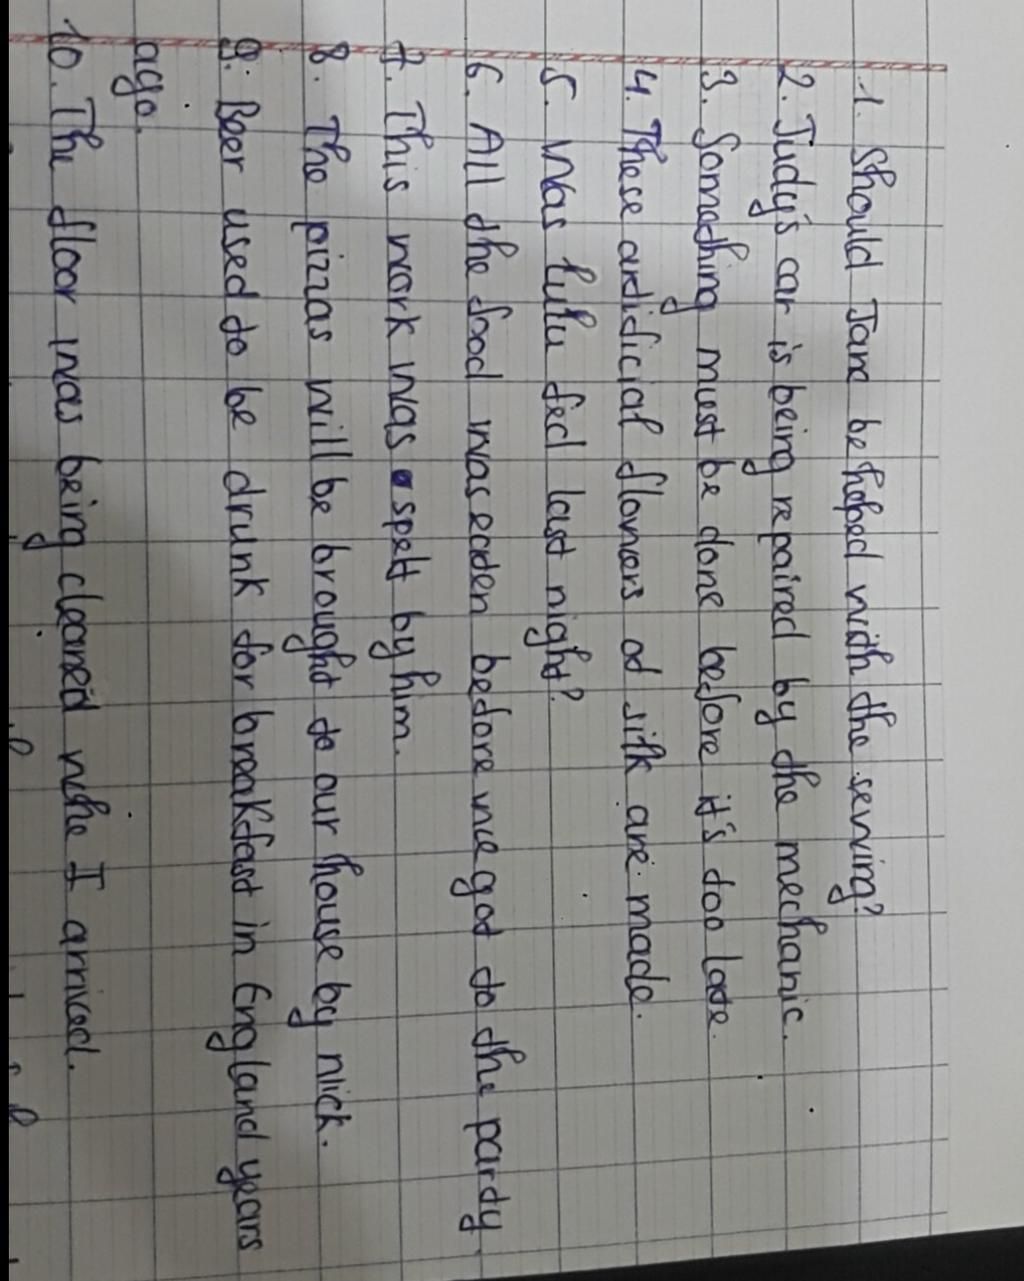 1. Should Jane be helped with the sewing?
2. Judy's car is being repaired by the mechanic.
3. Something must be done before it's too late.
4. These artificial flowers of silk are made.
5. Was Lulu fed last night?
6. All the food was eaten before we got to the party.
7. This work was spelt by him.
8. The pizzas will be brought to our house by nick.
9. Beer used to be drunk for breakfast in England years
ago.
10. The floor was being cleaned whe I arrived.